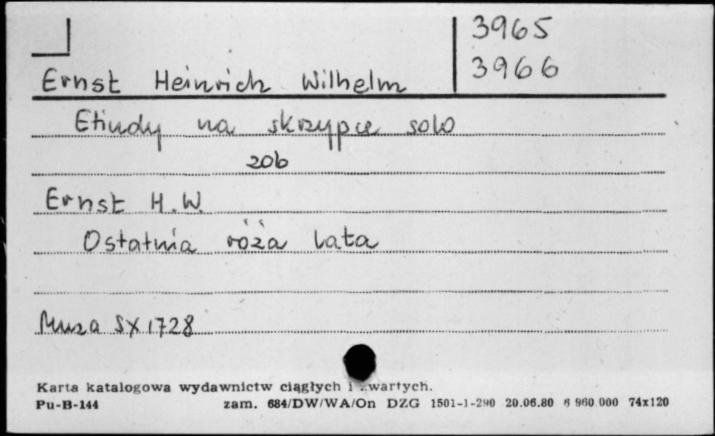 3965
3966
Ernst Heinrich Wilhelm
Etiudy na skrzypce solo
zob
Ernst H.W.
Ostatnia róża lata
Muza SX 1728
Karta katalogowa wydawnictw ciągłych i zwartych.
Pu-B-144 zam. 684/DW/WA/On DZG 1501-1-290 20.06.80 6 960.000 74x120